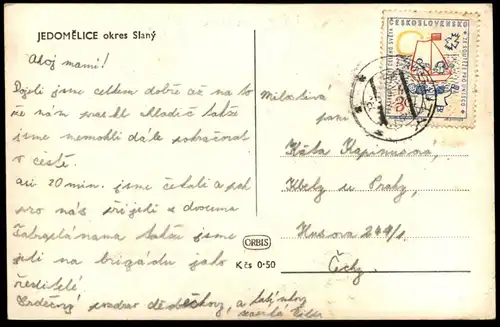 JEDOMĚLICE okres Slaný
Ahoj mami!
Dojeli jsme celkem dobře až na to
že nám praskl chladič takže
jsme nemohli dále pokračovat
v cestě.
asi 20 min. jsme čekali a pak
pro nás přijeli s dvouma
takže jsme
jeli na brigádu jako
ředitelé.
Srdečný pozdrav
ORBIS
Kčs 0·50
ČESKOSLOVENSKO
Milostivá
paní
Káťa
Kbely u Prahy,
Husova 249/1.
Čechy.